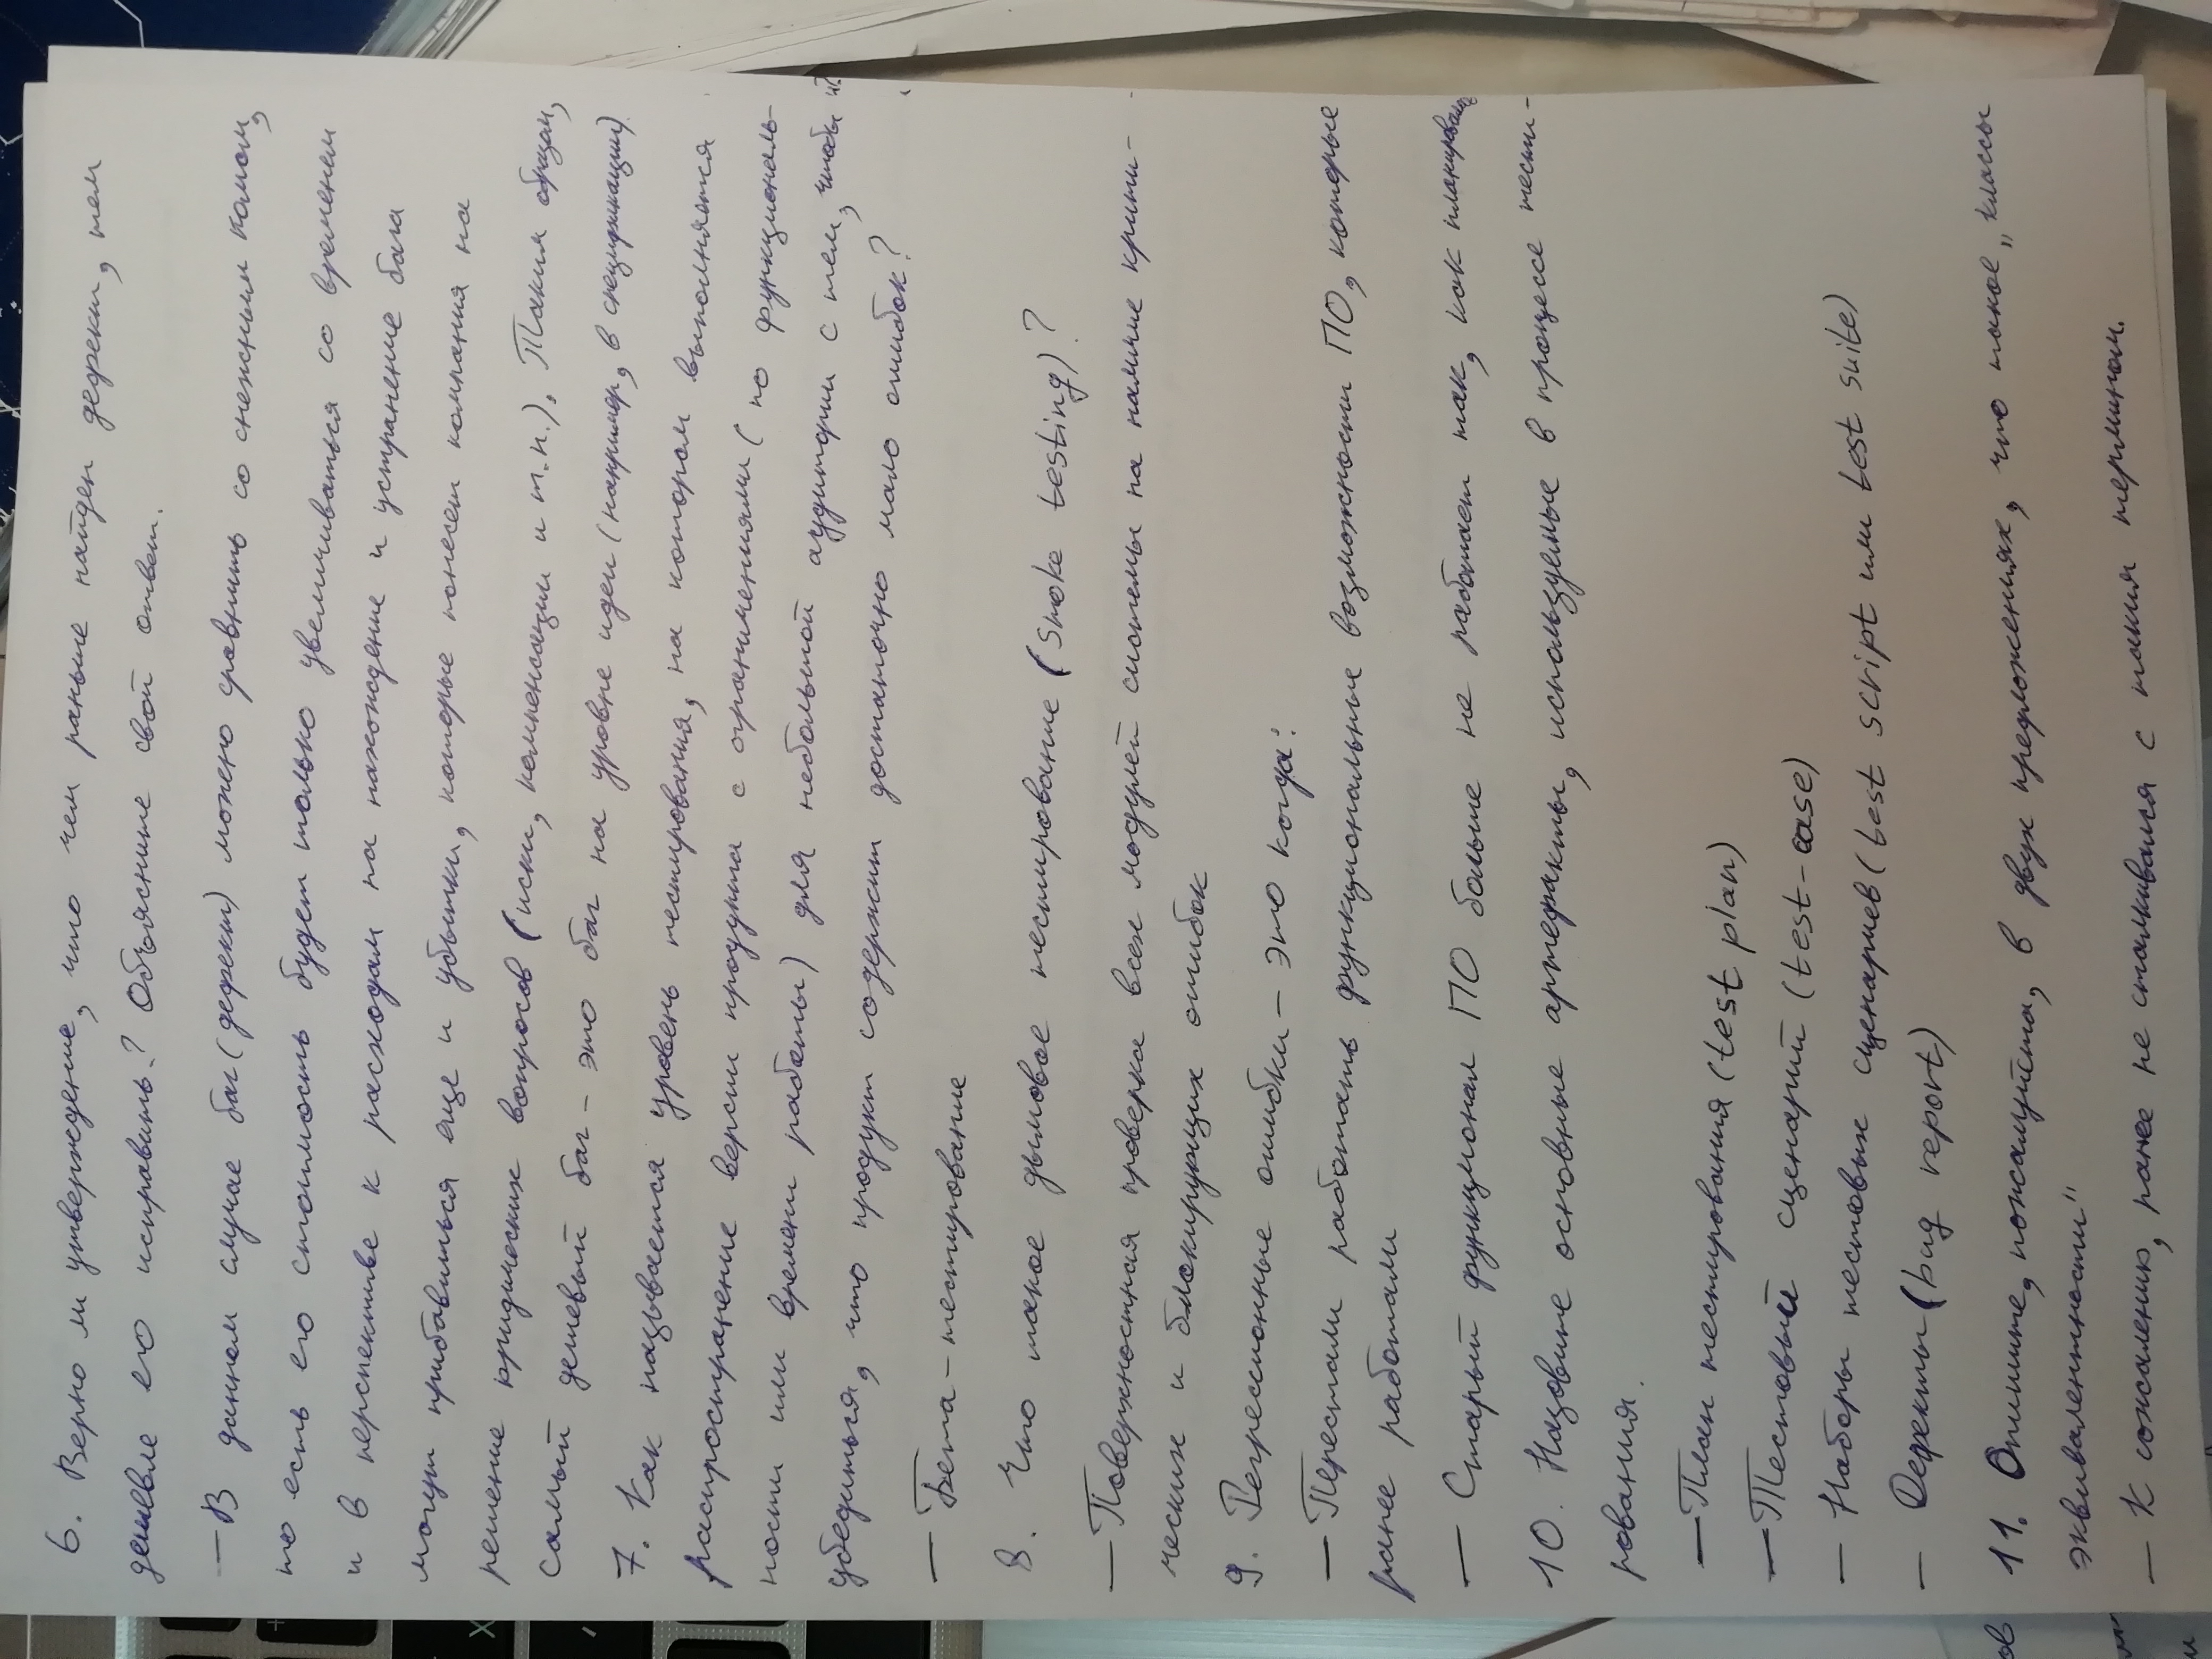 6. Верно ли утверждение, что чем раньше найден дефект, тем
дешевле его исправить? Объясните свой ответ.
— В данном случае баг (дефект) можно сравнить со снежным комом,
то есть его стоимость будет только увеличиваться со временем
и в перспективе к расходам на нахождение и устранение бага
могут прибавиться еще и убытки, которые понесет компания на
решение юридических вопросов (иски, компенсации и т.п.). Таким образом,
самый дешевый баг - это баг на уровне идеи (например, в спецификации).
7. Как называется уровень тестирования, на котором выполняется
распространение версии продукта с ограничениями (по функциональ-
ности или времени работы) для небольшой аудитории с тем, чтобы
убедиться, что продукт содержит достаточно мало ошибок?
— Бета-тестирование
8. Что такое дымовое тестирование (smoke testing)?
— Поверхностная проверка всех модулей системы на наличие крити-
ческих и блокирующих ошибок
9. Регрессионные ошибки - это когда:
— Перестали работать функциональные возможности ПО, которые
ранее работали
— Старый функционал ПО больше не работает так, как планировалось
10. Назовите основные артефакты, используемые в процессе тести-
рования.
— План тестирования (test plan)
— Тестовый сценарий (test-case)
— Наборы тестовых сценариев (test script или test suite)
— Дефекты (bug report)
11. Опишите, пожалуйста, в двух предложениях, что такое „классы
эквивалентности"
— К сожалению, ранее не сталкивался с таким термином.